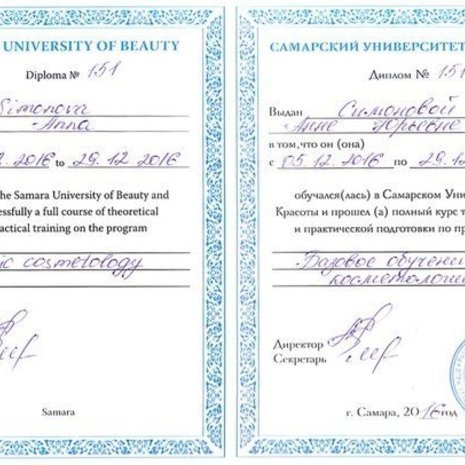 UNIVERSITY OF BEAUTY
Diploma № 151
Simonova
Anna
.2016 to 29.12.2016
he Samara University of Beauty and
essfully a full course of theoretical
actical training on the program
ic cosmetology
Samara
САМАРСКИЙ УНИВЕРСИТЕТ
Диплом № 151
Выдан Симоновой
Анне Юрьевне
в том,что он (она)
с 05.12.2016 по 29.12
обучался(лась) в Самарском Уни
Красоты и прошел (а) полный курс т
и практической подготовки по пр
Базовое обучени
косметологи
Директор
Секретарь
г. Самара, 2016год